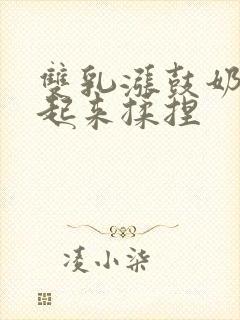 雙乳漲鼓奶
起来揉捏
凌小柒